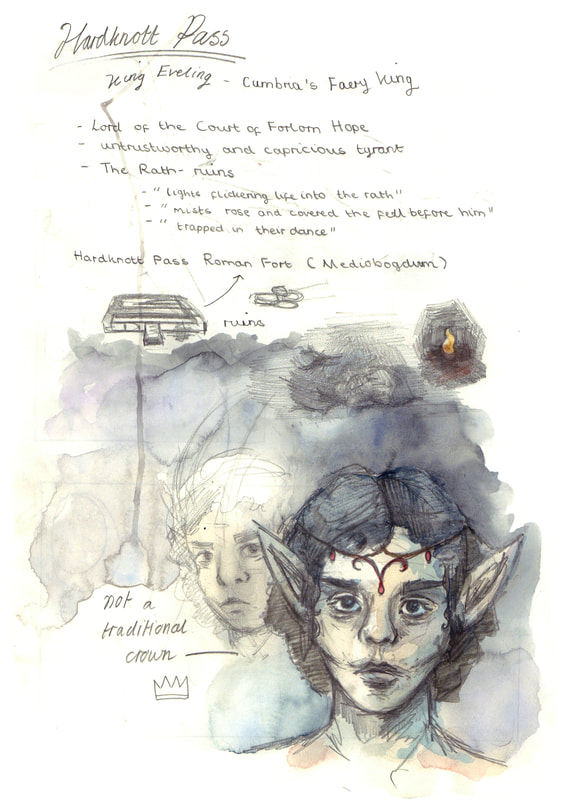 Hardknott Pass
King Eveling - Cumbria's Faery King
- Lord of the Court of Forlorn Hope
- untrustworthy and capricious tyrant
- The Rath - ruins
- "lights flickering life into the rath"
- "mists rose and covered the fell before him"
- "trapped in their dance"
Hardknott Pass Roman Fort (Mediobogdum)
ruins
not a
traditional
crown